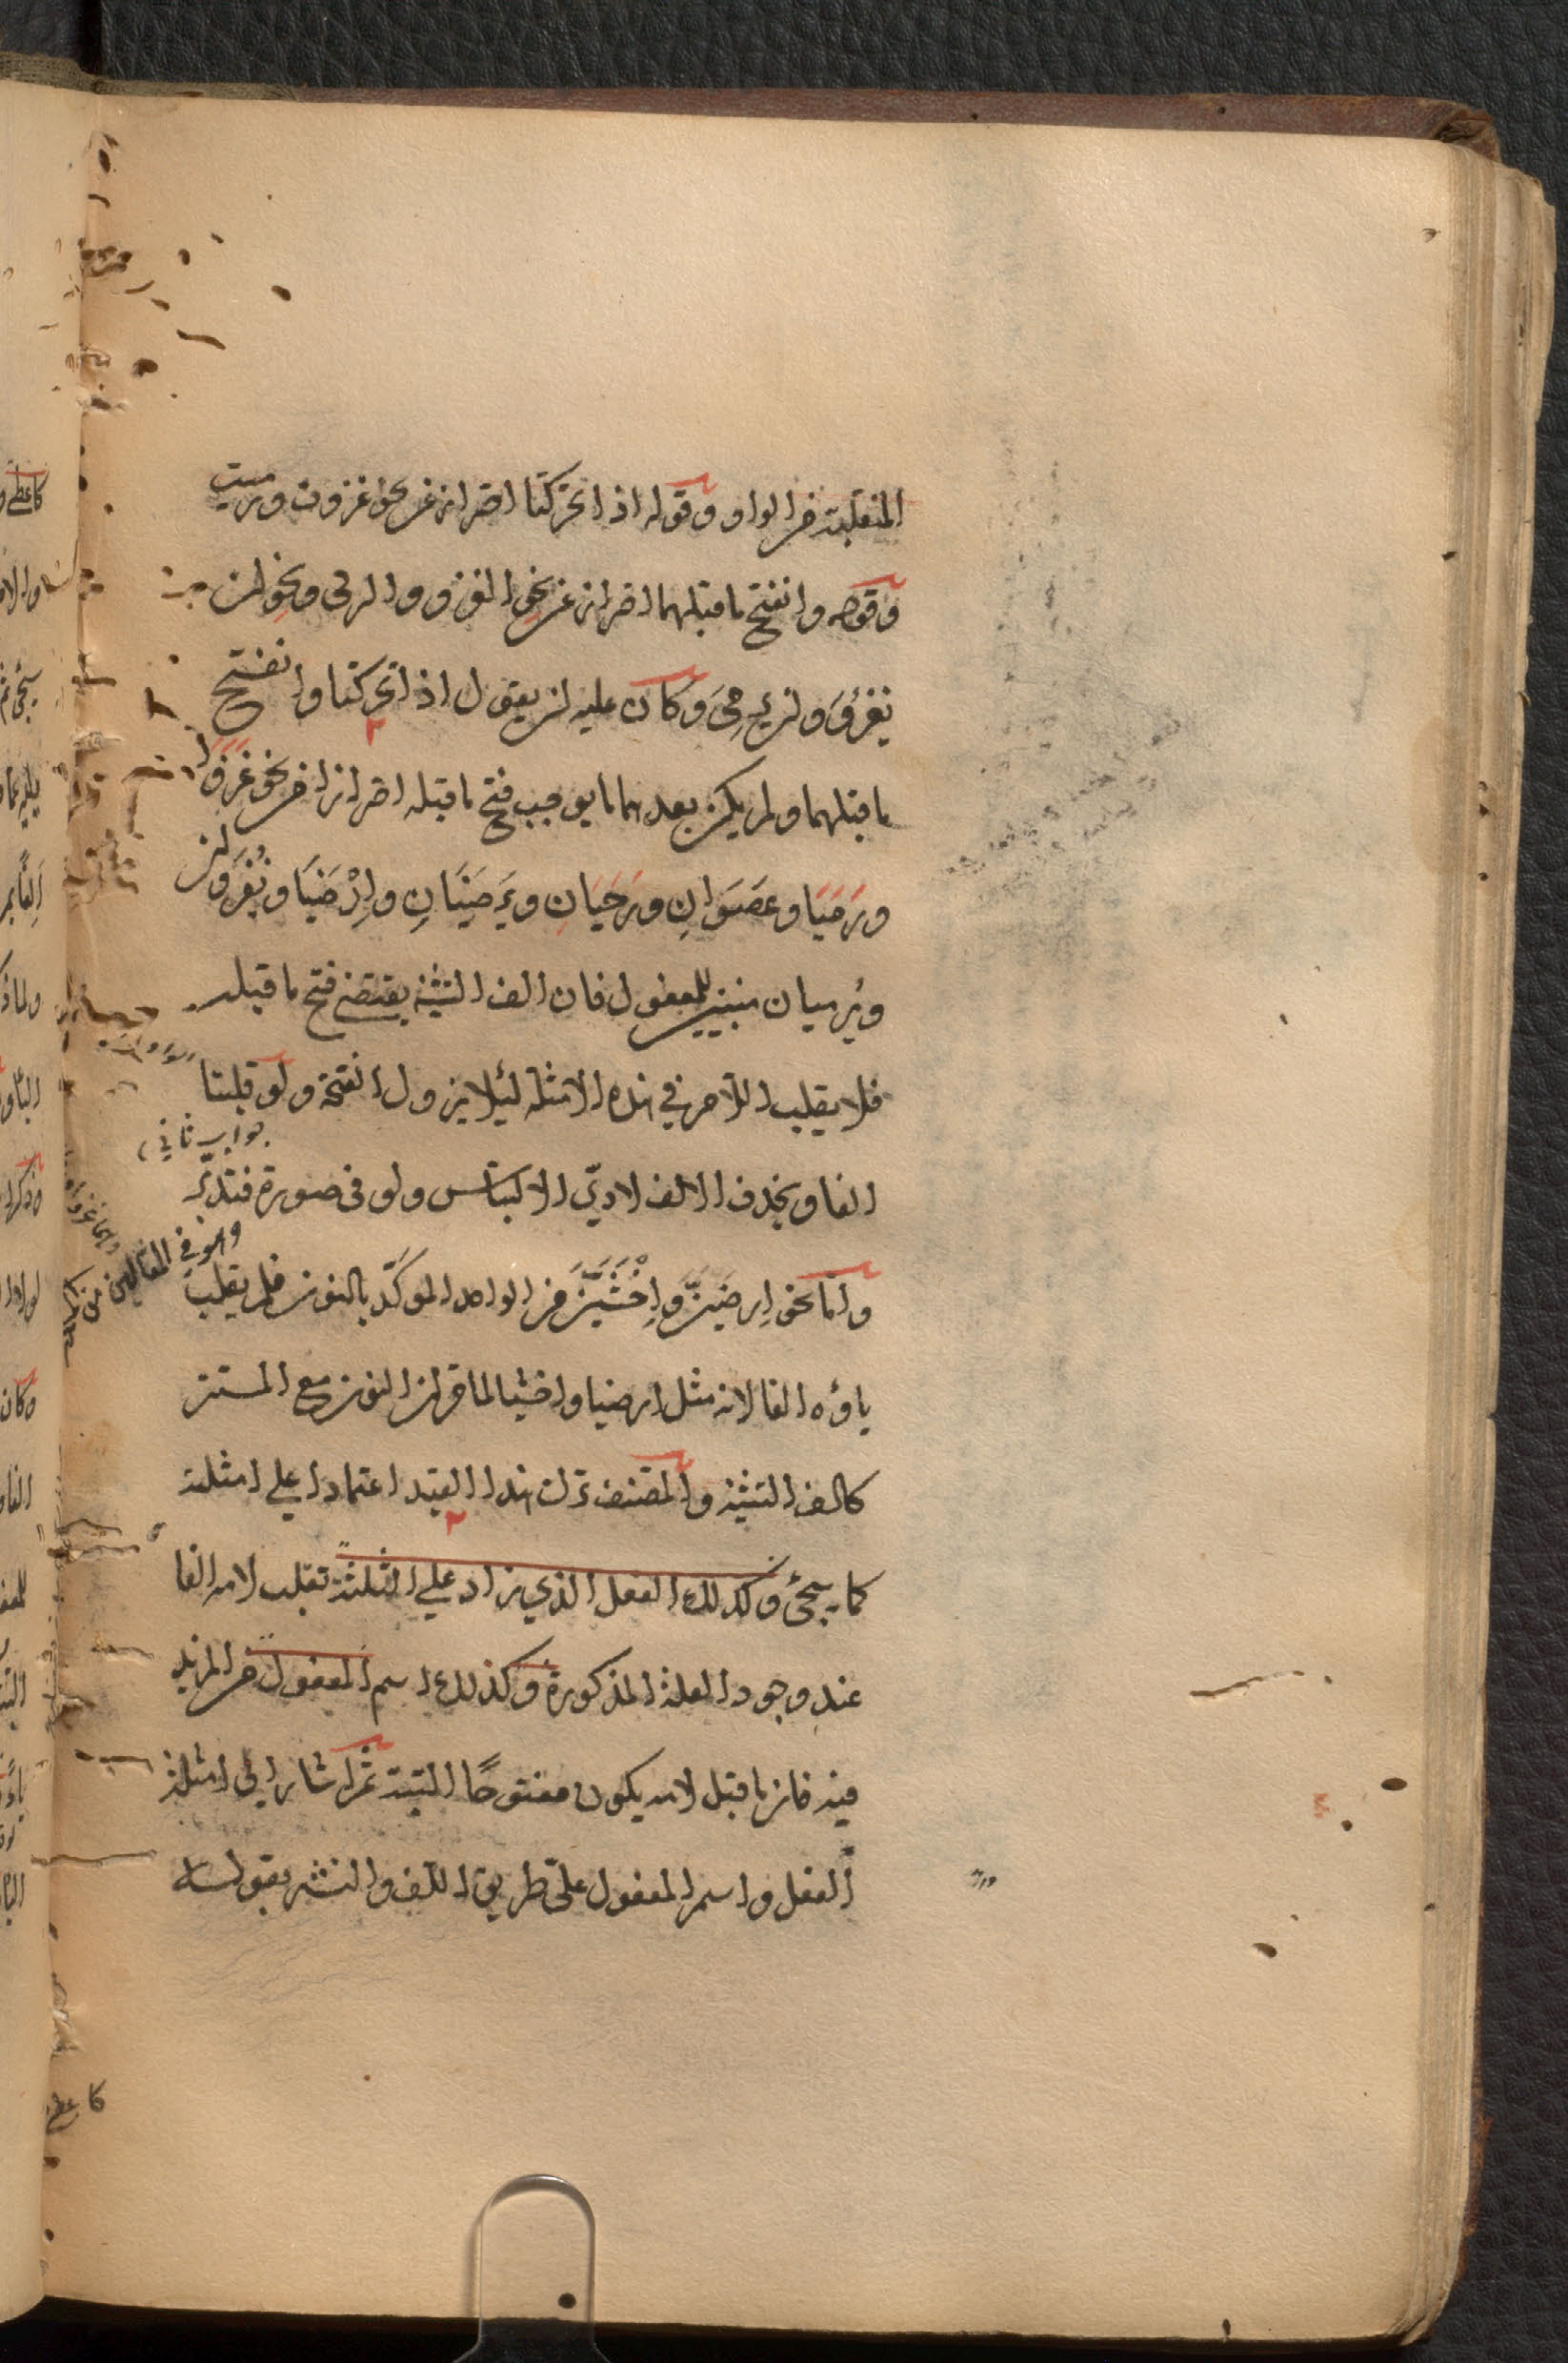 المنقلبة من الواو وقوله اذا تحركتا احتراز عن نحو غزوت ورميت
وقوله وانفتح ما قبلهما احتراز عن نحو الغزو والرمي ونحو لن
يغزُوَ ولن يرمِيَ وكان عليه ان يقول اذا تحركتا وانفتح
ما قبلهما ولم يكن بعدهما ما يوجب فتح ما قبله احترازا عن نحو غَزَوَا
ورَمَيَا وعَصَوَانِ ورَحَيَانِ ويَرْضَيَانِ وارْضَيَا ويُغْزَوَان
ويُرميان مبنيين للمفعول فان الف التثنية يقتضي فتح ما قبله
فلا يقلب اللام في هذه الامثلة لئلا يزول الفتحة ولو قلبتا
جواب ثاني
الفا ويحذف الالف لادّى الالتباس ولو في صورة فتدبّر
واما نحو ارضينّ واخشينّ من الواحد الموكّد بالنون فلم يقلب
ياؤه الفا لانه مثل ارضيا واخشيا لما مر ان النون مع المستتر
كالف التثنية والمصنف ترك هذا القيد اعتمادا على امثلته
كما سيجئ وكذلك الفعل الذي زاد على الثلثة تقلب لامه الفا
عند وجود العلة المذكورة وكذلك اسم المفعول من المزيد
فيه فان ما قبل لامه يكون مفتوحًا البتة ثم اشار الى امثلة
الفعل واسم المفعول على طريق اللف والنشر بقوله